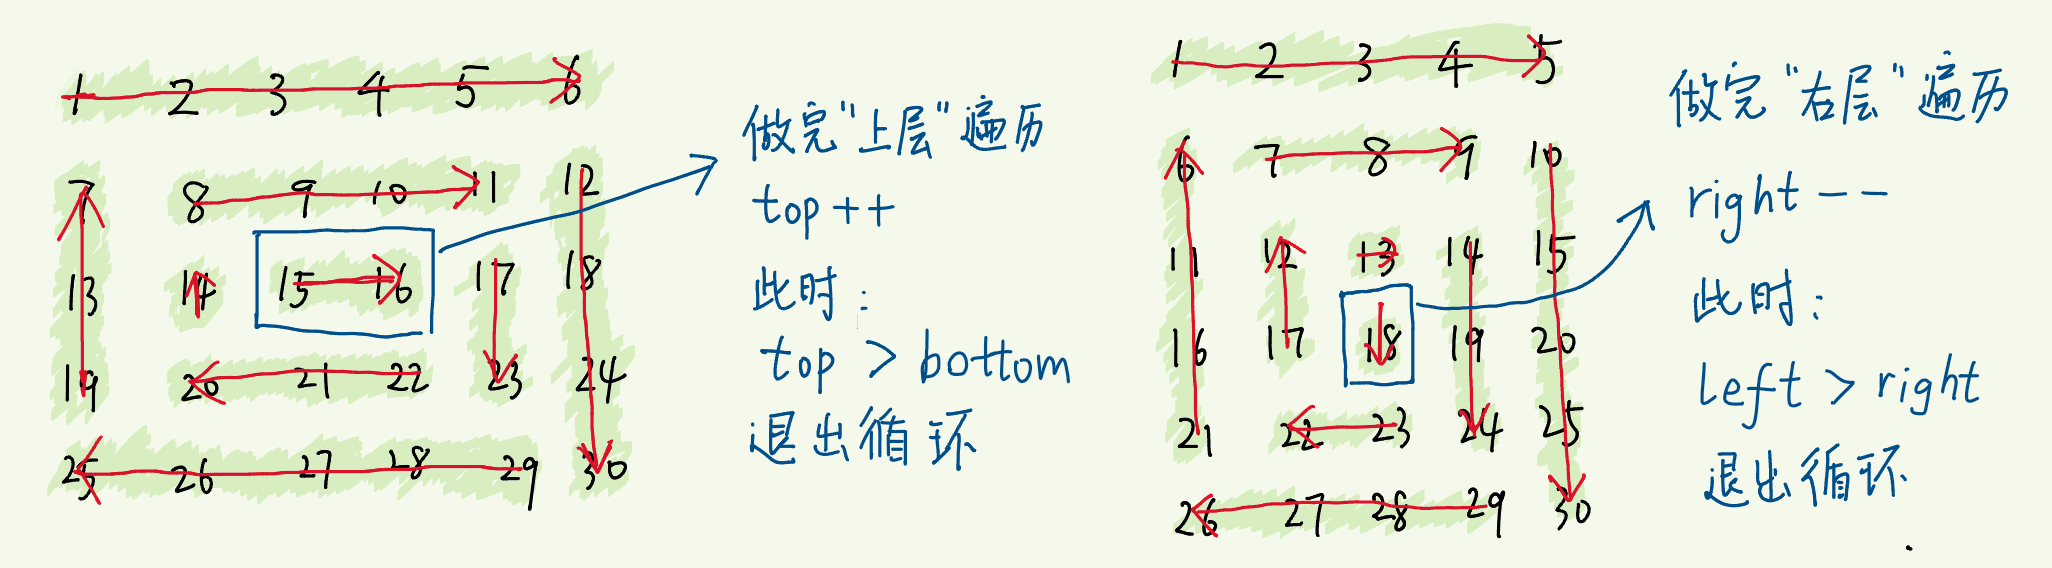 1 2 3 4 5 6
7 8 9 10 11 12
13 14 15 16 17 18
19 20 21 22 23 24
25 26 27 28 29 30
做完“上层”遍历
top ++
此时：
top > bottom
退出循环
1 2 3 4 5
6 7 8 9 10
11 12 13 14 15
16 17 18 19 20
21 22 23 24 25
26 27 28 29 30
做完“右层”遍历
right --
此时：
left > right
退出循环